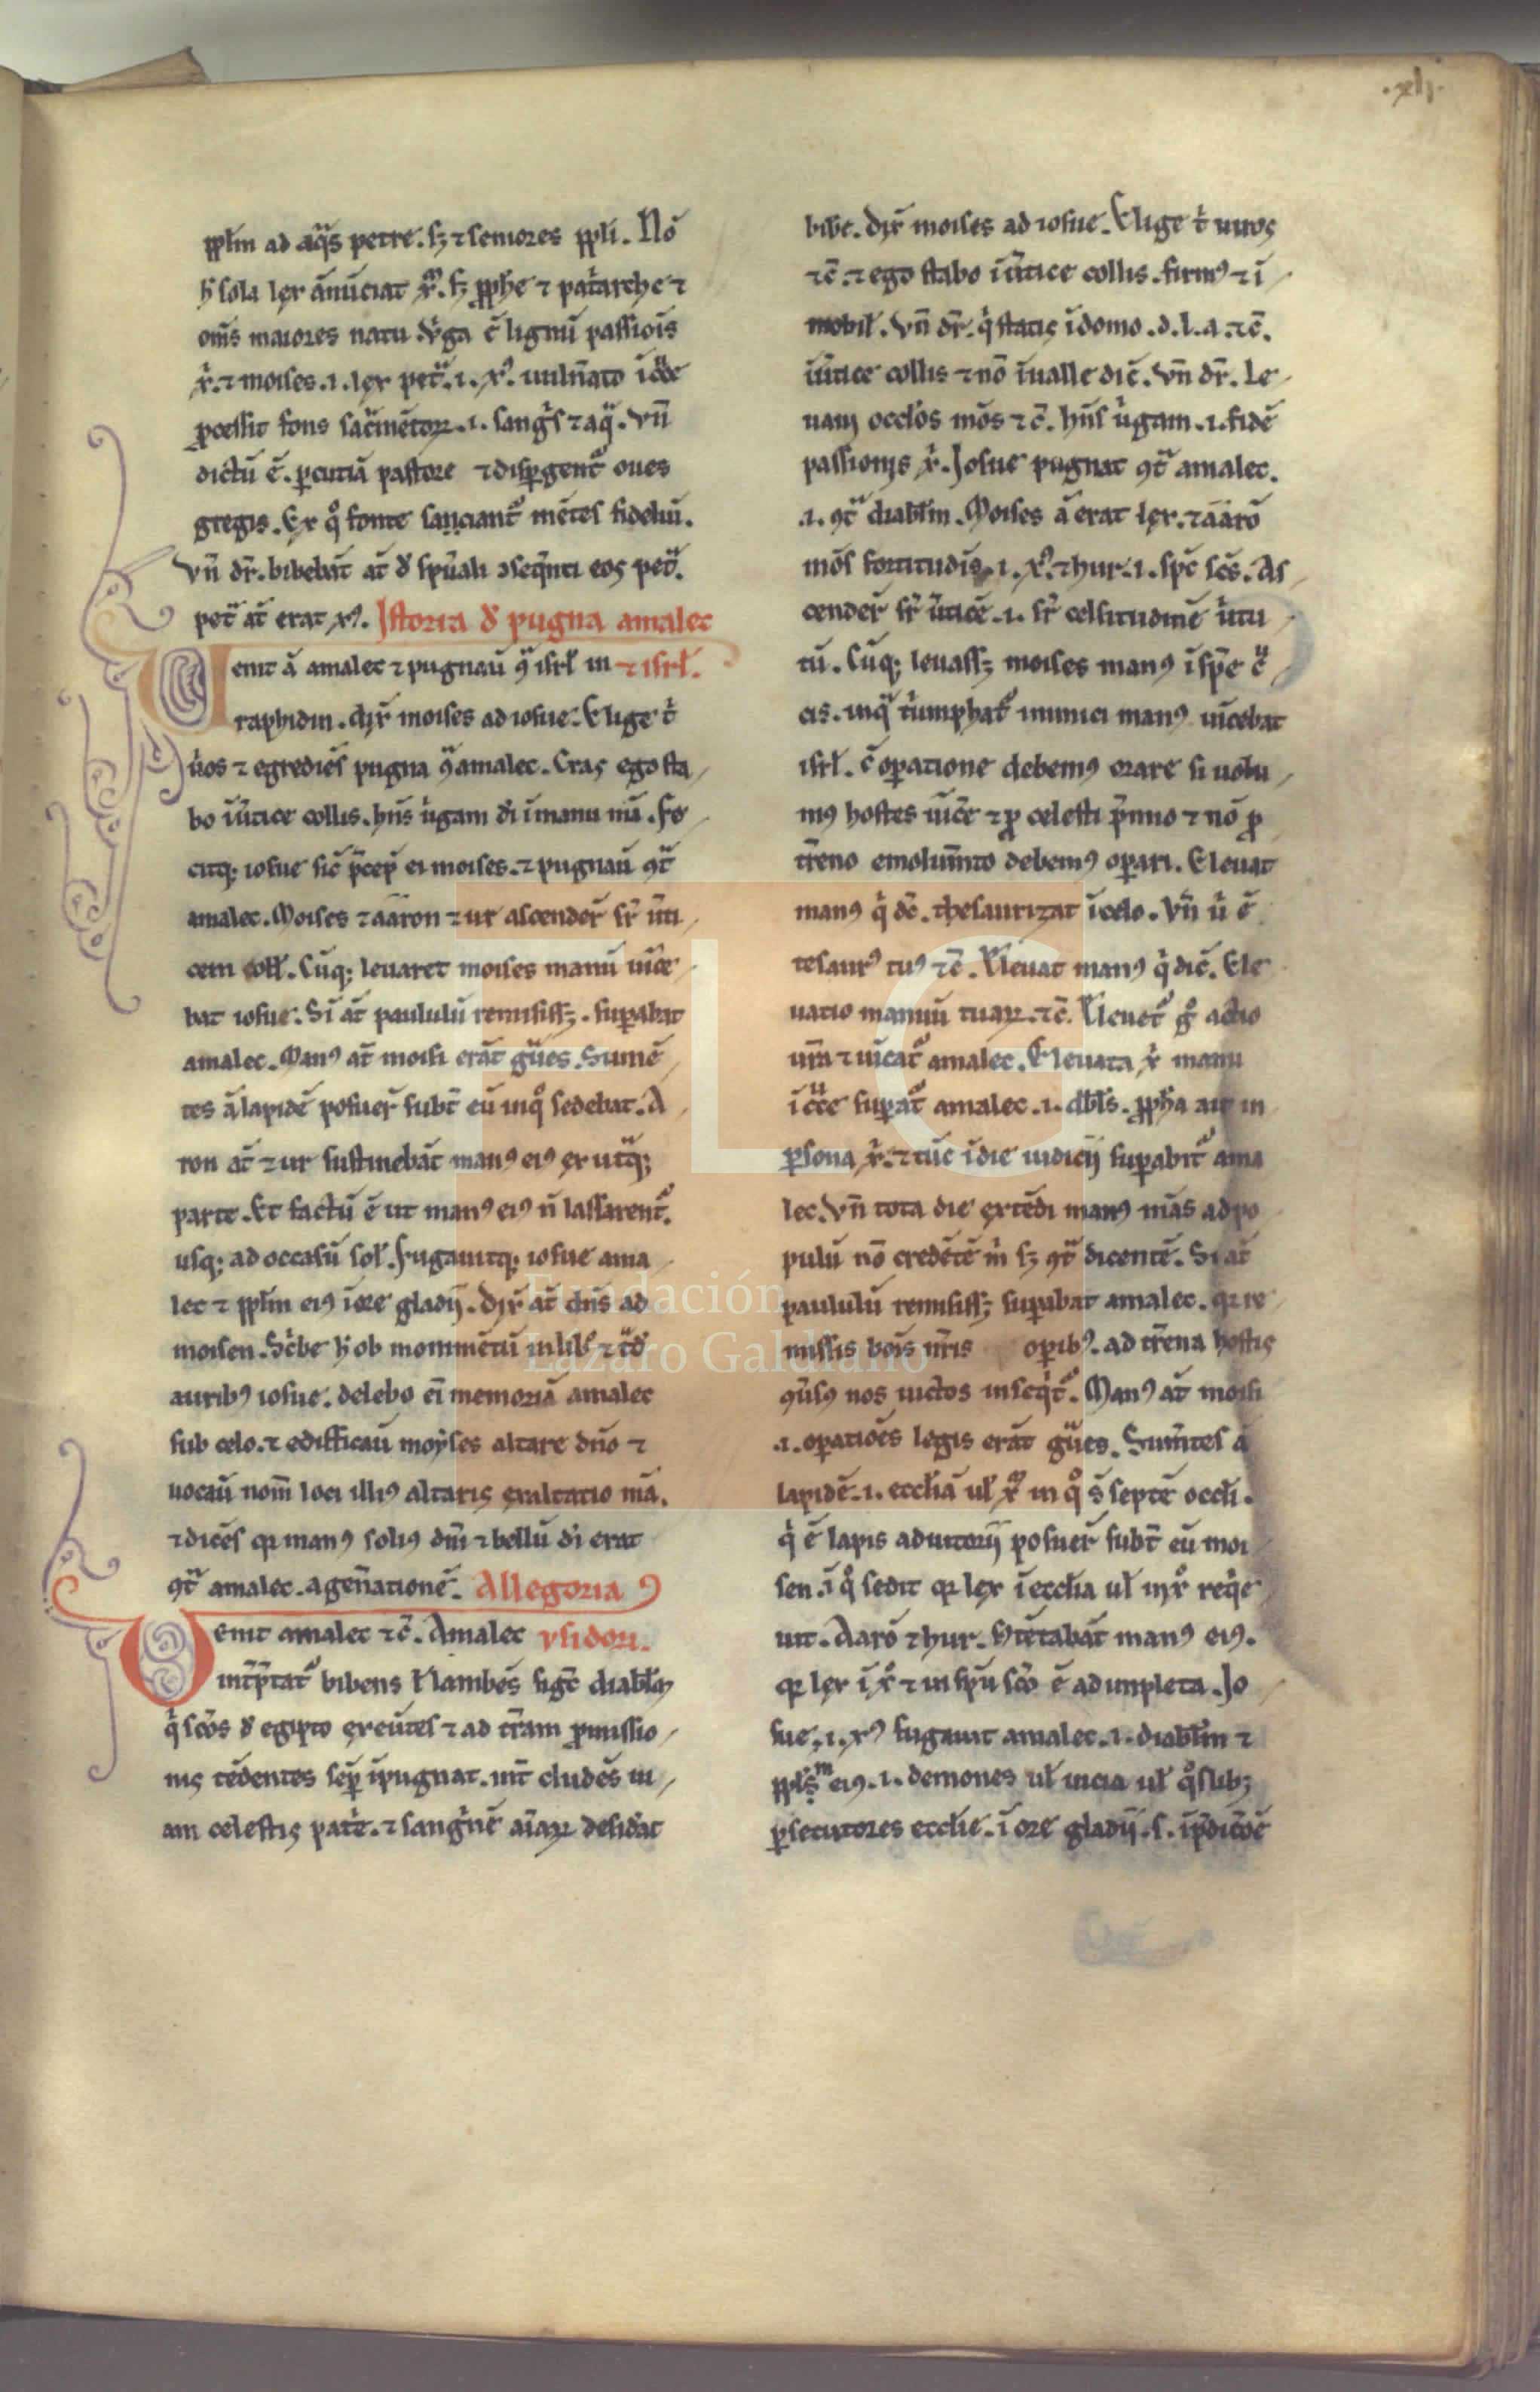 .xlj.
pplm ad aq̃s petre. sꝫ ⁊ seniores ppli. Nõ
h̃ sola lex ãnũciat xp̃m. sꝫ pphe ⁊ patarche ⁊
om̃s maiores natu. Vͥga ẽ lignũ passiois̃
xͥ. ⁊ moises .i. lex pet̃ .i. xᵒ. uuln̄ato ĩ cͣce
ꝓcessit fons sac̃mẽtoꝝ .i. sang̃s ⁊ aq̃. Vñ
dictũ ẽ. ꝑcutiã pastore ⁊ disꝑgent᷑ oues
gregis. Ex qͦ fonte sanciant᷑ mẽtes fideliũ.
Vñ dr̃. bibebãt aũt d̃ sp̃uali ↄseq̃nti eos pet̃.
pet̃ aũt erat xꝰ. Istoria d̃ pugna amalec
⁊ isrl̃.
Uenit ã amalec ⁊ pugnaũ ꝯͣ isrl̃ in
raphidin. dix̃ moises ad iosue. Elige t̃
uͥos ⁊ egrediẽs pugna ꝯͣ amalec. Cras ego sta
bo ĩ ũtice collis. hñs uͥgam di̇ ĩ manu mã. Fe
citqꝫ iosue sic̃ p̃cep̃ ei moises. ⁊ pugnaũ ꝯt̃
amalec. Moises ⁊ aaron ⁊ ur ascender̃ sr̃ ũti
cem coll̃. Cũqꝫ leuaret moises manũ uĩce
bat iosue. Si ãt paululũ remisissꝫ. suꝑabat
amalec. Manꝰ ãt moisi erãt gͣues. Sumẽ
tes ã lapidẽ posuer̃ subt̃ eũ inqͦ sedebat. A
ron ãt ⁊ ur sustinebãt manꝰ eiꝰ ex ut̃qꝫ
parte. Et factũ ẽ ut manꝰ eiꝰ ñ lassarent᷑.
usqꝫ ad occasũ sol̃. Fugauitqꝫ iosue ama
lec ⁊ pplm eiꝰ ĩ ore gladij. Dix̃ ãt dñs ad
moisen. Scͥbe h̃ ob monimẽtũ in libͦ ⁊ tͣd̃
auribꝰ iosue. delebo ei̇ memoriã amalec
sub celo. ⁊ edifficaũ moyses altare dño ⁊
uocaũ nom̃ loci illiꝰ altaris exaltatio mã.
⁊ dicẽs qꝛ manꝰ soliꝰ dñi ⁊ bellũ di̇ erat
ꝯt̃ amalec. a geñationẽ. Allegoria
ysidori.
Uenit amalec ⁊c̃. Amalec
int̃p̃tat᷑ bibens ł lambẽs sigt̃ diablm̃
qͥ scõs d̃ egipto exeũtes ⁊ ad tr̃am ꝓmissio
nis tẽdentes sep̃ ĩpugnat. nit̃ cludẽs ui
am celestis pat̃e. ⁊ sangͥnẽ aĩaꝝ desid̃at
bibe. Dix̃ moises ad iosue. Elige t̃ uiros
⁊c̃. ⁊ ego stabo ĩ ũtice collis. firmꝰ ⁊ ĩ
mobil̃. Vñ dr̃. qͥ statis ĩ domo .d. l. a. ⁊c̃.
ĩ ũtice collis ⁊ nõ ĩ ualle diẽ. Vñ dr̃. Le
uaui occl̃os mõs ⁊c̃. hñs uͥgam .i. fidẽ
passionis xͥ. Josue pugnat ꝯt̃ amalec.
.i. ꝯt̃ diablm̃. Moises ã erat lex. ⁊ aarõ
mõs fortitudĩs .i. xꝰ. ⁊ hur .i. spc̃ scs̃. As
cender̃ sr̃ ũticẽ .i. sr̃ celsitudinẽ uͥtu
tũ. Cũqꝫ leuassꝫ moises manꝰ ĩ spẽ cͣ
cis. inqͣ tͥumphat᷑ inimici manꝰ uĩcebat
isrl̃. ĩ oꝑatione debemꝰ orare si uolu
mꝰ hostes uĩce ⁊ ꝓ celesti p̃mio ⁊ nõ ꝓ
tr̃eno emolum̃to debemꝰ oꝑari. Eleuat
manꝰ qͥ dc̃. thesaurizat ĩ celo. Vñ uͥ ẽ
tesaurꝰ tuꝰ ⁊c̃. Eleuat manꝰ qͥ diẽ. Ele
uatio manuũ tuaꝝ. ⁊c̃. Eleuet᷑ gͦ actio
ur̃a ⁊ uĩcat᷑ amalec. Eleuata xͥ manu
ĩ cͣce suꝑat᷑ amalec .i. dbl̃s. ppħa ait in
ꝑsona xͥ. ⁊ tũc ĩ die iudicij suꝑabit᷑ ama
lec. Vñ tota die extẽdi manꝰ mãs ad po
pulũ nõ credẽtẽ mͥ sꝫ ꝯt̃ dicentẽ. Si ãt
paululũ remisissꝫ suꝑabat amalec. qꝛ re
missis bois̃ nr̃is oꝑibꝰ. ad tr̃ena hostis
ꝯũsꝰ nos uictos inseqͥt᷑. Manꝰ ãt moisi
.i. oꝑatiões legis erãt gͣues. Sum̃tes ã
lapidẽ .i. eccl̃iã ul̃ xp̃m in qͦ s̃ septẽ occl̃i.
qͥ ẽ lapis adiutorij posuer̃ subt̃ eũ moi
sen. ĩ qͦ sedit qꝛ lex ĩ eccl̃ia ul̃ in xͦ reqͥe
uit. Aarõ ⁊ hur. Stẽtabãt manꝰ eiꝰ.
qꝛ lex ĩ xͦ ⁊ in sp̃u scõ ẽ adimpleta. Jo
sue .i. xꝰ fugauit amalec .i. diablm̃ ⁊
eiꝰ .i. demones ul̃ uicia ul̃
ꝑsecutores eccl̃ie. ĩ ore gladij .s. ĩ p̃dicõẽ
Fundación
Lázaro Galdiano
FLG